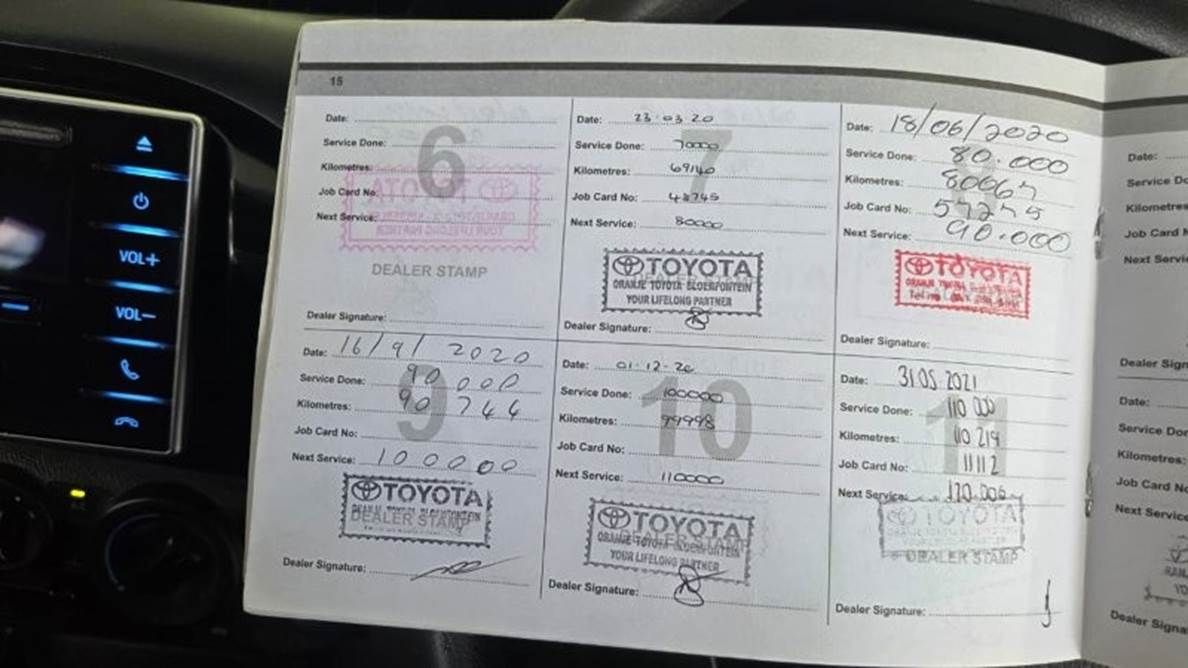 VOL+
VOL-
15
6
Date:
Service Done:
Kilometres:
Job Card No:
Next Service:
DEALER STAMP
Dealer Signature:
7
Date: 23.03.20
Service Done: 70000
Kilometres: 69140
Job Card No: 48745
Next Service: 80000
TOYOTA
ORANJE TOYOTA BLOEMFONTEIN
YOUR LIFELONG PARTNER
Dealer Signature:
Date: 18/06/2020
Service Done: 80.000
Kilometres: 80067
Job Card No: 57275
Next Service: 90.000
TOYOTA
Dealer Signature:
9
Date: 16/9/2020
Service Done: 90 000
Kilometres: 90 744
Job Card No:
Next Service: 100000
TOYOTA
DEALER STAMP
Dealer Signature:
10
Date: 01-12-20
Service Done: 100000
Kilometres: 99998
Job Card No:
Next Service: 110000
TOYOTA
ORANJE TOYOTA BLOEMFONTEIN
YOUR LIFELONG PARTNER
Dealer Signature:
11
Date: 31.05.2021
Service Done: 110 000
Kilometres: 110 219
Job Card No: 11112
Next Service:
TOYOTA
DEALER STAMP
Dealer Signature:
Date:
Kilometres:
Dealer Sign
Date:
Service Don
Kilometres:
Job Card No
Next Service
Dealer Signa